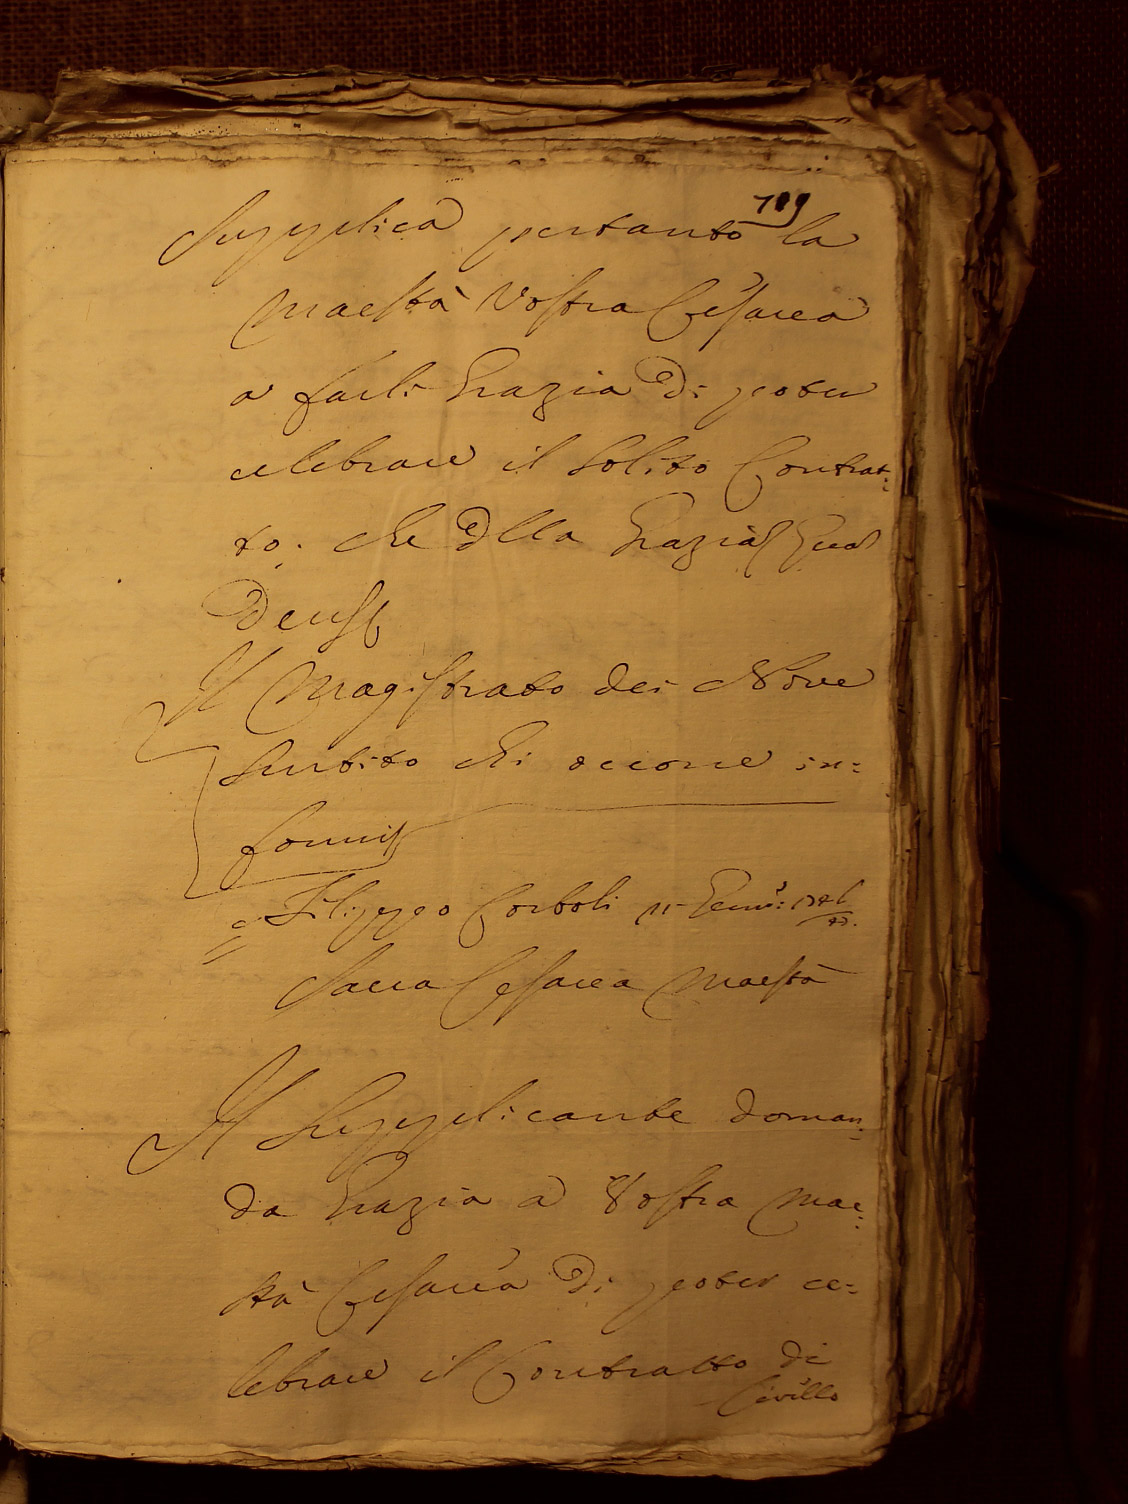 719
Supplica pertanto la
Maestà Vostra Cesarea
a farli Grazia di poter
celebrare il solito Contrat:
to. che dlla Grazia Qua
Deus
Il Magistrato dei Nove
sentito chi occorre in:
formi
Filippo Corboli p. Genn:
Sacra Cesarea Maestà
Il Supplicante doman:
da Grazia a Vostra Mae:
stà Cesarea di poter ce:
lebrare il Contratto di
Civillo